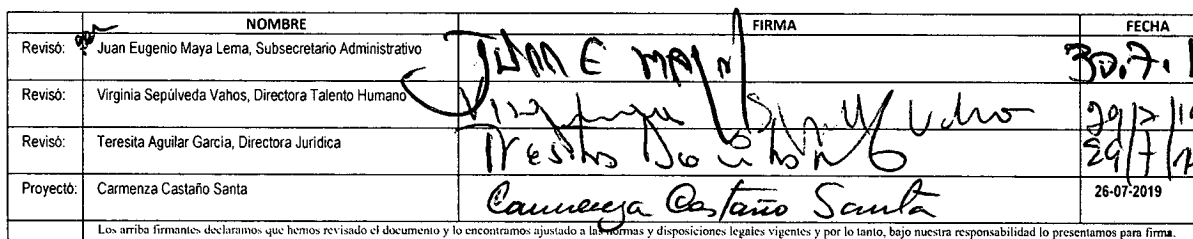 NOMBRE FIRMA FECHA
Revisó: Juan Eugenio Maya Lema, Subsecretario Administrativo JUAN E MAYA 30.7.1
Revisó: Virginia Sepúlveda Vahos, Directora Talento Humano
Revisó: Teresita Aguilar García, Directora Jurídica 29/7/1
Proyectó: Carmenza Castaño Santa Carmenza Castaño Santa 26-07-2019
Los arriba firmantes declaramos que hemos revisado el documento y lo encontramos ajustado a las normas y disposiciones legales vigentes y por lo tanto, bajo nuestra responsabilidad lo presentamos para firma.